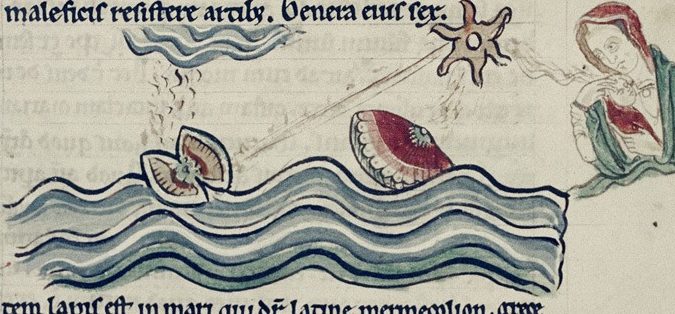 maleficis resistere artibꝫ. Genera eius sex.
tem lapis est in mari qui dr̄ latine mermecolion.